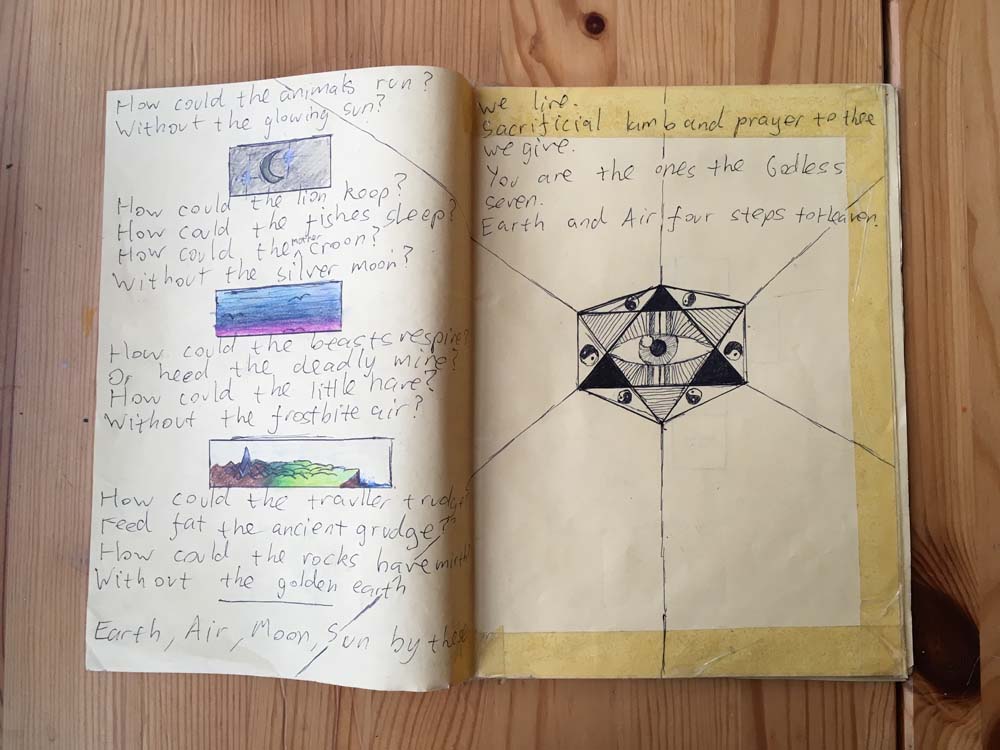 How could the animals run?
Without the glowing sun?
How could the lion keep?
How could the fishes sleep?
How could the mother croon?
Without the silver moon?
How could the beasts respire?
Or heed the deadly mire?
How could the little hare?
Without the frostbite air?
How could the travller trudge
Feed fat the ancient grudge?
How could the rocks have mirth
Without the golden earth
Earth, Air, Moon, Sun by these
we live.
Sacrificial lamb and prayer to thee
we give.
You are the ones the Godless
seven.
Earth and Air four steps to Heaven.